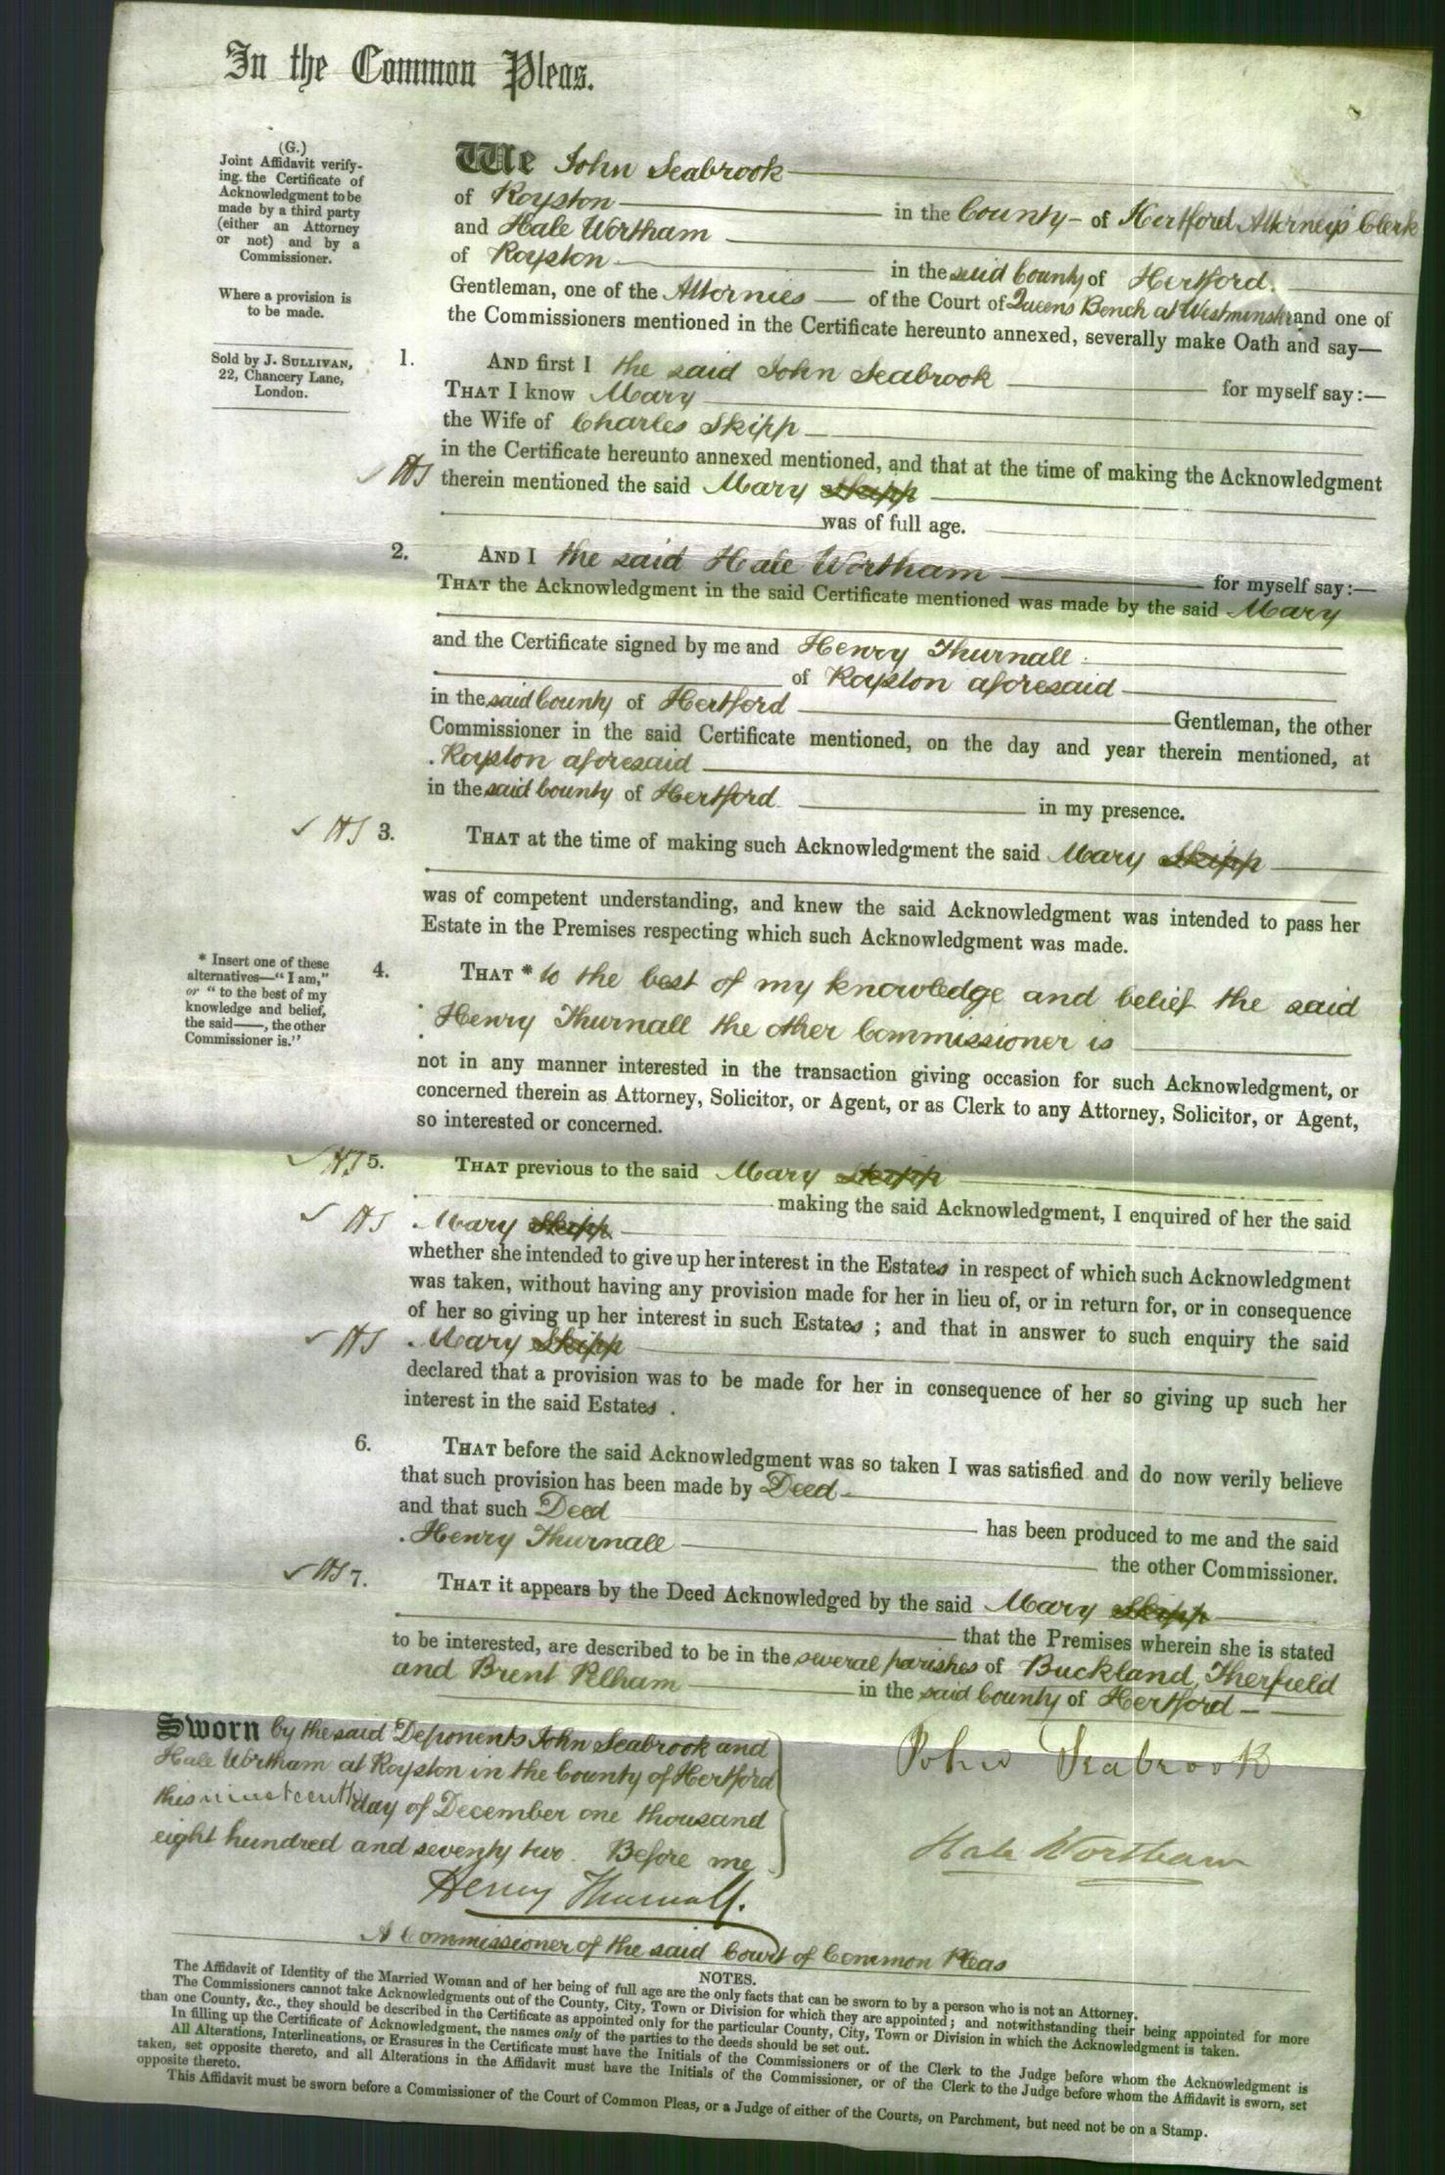 In the Common Pleas.
(G.)
Joint Affidavit verify-
ing the Certificate of
Acknowledgment to be
made by a third party
(either an Attorney
or not) and by a
Commissioner.
Where a provision is
to be made.
Sold by J. SULLIVAN,
22, Chancery Lane,
London.
We John Seabrook
of Royston in the County of Hertford Attorneys Clerk
and Hale Wortham
of Royston in the said County of Hertford.
Gentleman, one of the Attornies of the Court of Queens Bench at Westminster and one of
the Commissioners mentioned in the Certificate hereunto annexed, severally make Oath and say—
1. AND first I the said John Seabrook for myself say:—
THAT I know Mary
the Wife of Charles Skipp
in the Certificate hereunto annexed mentioned, and that at the time of making the Acknowledgment
therein mentioned the said Mary Skipp
was of full age.
2. AND I the said Hale Wortham for myself say:—
THAT the Acknowledgment in the said Certificate mentioned was made by the said Mary
and the Certificate signed by me and Henry Thurnall
of Royston aforesaid
in the said County of Hertford Gentleman, the other
Commissioner in the said Certificate mentioned, on the day and year therein mentioned, at
Royston aforesaid
in the said County of Hertford in my presence.
3. THAT at the time of making such Acknowledgment the said Mary Skipp
was of competent understanding, and knew the said Acknowledgment was intended to pass her
Estate in the Premises respecting which such Acknowledgment was made.
* Insert one of these
alternatives—"I am,"
or "to the best of my
knowledge and belief,
the said——, the other
Commissioner is."
4. THAT * to the best of my knowledge and belief the said
Henry Thurnall the other Commissioner is
not in any manner interested in the transaction giving occasion for such Acknowledgment, or
concerned therein as Attorney, Solicitor, or Agent, or as Clerk to any Attorney, Solicitor, or Agent,
so interested or concerned.
5. THAT previous to the said Mary Skipp
making the said Acknowledgment, I enquired of her the said
Mary Skipp
whether she intended to give up her interest in the Estates in respect of which such Acknowledgment
was taken, without having any provision made for her in lieu of, or in return for, or in consequence
of her so giving up her interest in such Estates ; and that in answer to such enquiry the said
Mary Skipp
declared that a provision was to be made for her in consequence of her so giving up such her
interest in the said Estates .
6. THAT before the said Acknowledgment was so taken I was satisfied and do now verily believe
that such provision has been made by Deed
and that such Deed has been produced to me and the said
Henry Thurnall the other Commissioner.
7. THAT it appears by the Deed Acknowledged by the said Mary Skipp
that the Premises wherein she is stated
to be interested, are described to be in the several parishes of Buckland, Therfield
and Brent Pelham in the said County of Hertford
Sworn by the said Deponents John Seabrook and
Hale Wortham at Royston in the County of Hertford
this nineteenth day of December one thousand
eight hundred and seventy two. Before me
John Seabrook
Hale Wortham
Henry Thurnall.
A Commissioner of the said Court of Common Pleas
NOTES.
The Affidavit of Identity of the Married Woman and of her being of full age are the only facts that can be sworn to by a person who is not an Attorney.
The Commissioners cannot take Acknowledgments out of the County, City, Town or Division for which they are appointed; and notwithstanding their being appointed for more
than one County, &c., they should be described in the Certificate as appointed only for the particular County, City, Town or Division in which the Acknowledgment is taken.
In filling up the Certificate of Acknowledgment, the names only of the parties to the deeds should be set out.
All Alterations, Interlineations, or Erasures in the Certificate must have the Initials of the Commissioners or of the Clerk to the Judge before whom the Acknowledgment is
taken, set opposite thereto, and all Alterations in the Affidavit must have the Initials of the Commissioner, or of the Clerk to the Judge before whom the Affidavit is sworn, set
opposite thereto.
This Affidavit must be sworn before a Commissioner of the Court of Common Pleas, or a Judge of either of the Courts, on Parchment, but need not be on a Stamp.